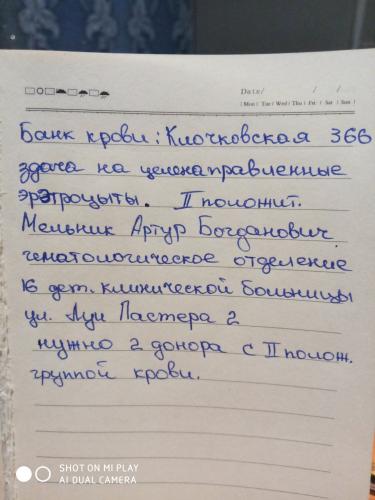 Date/ / /
Mon Tue Wed Thu Fri Sat Sun
Банк крови: Клочковская 366
здача на целенаправленные
эрэтроцыты. II положит.
Мельник Артур Богданович
гематологическое отделение
16 дет. клинической больницы
ул. Луи Пастера 2
нужно 2 донора с II полож.
группой крови.
SHOT ON MI PLAY
AI DUAL CAMERA